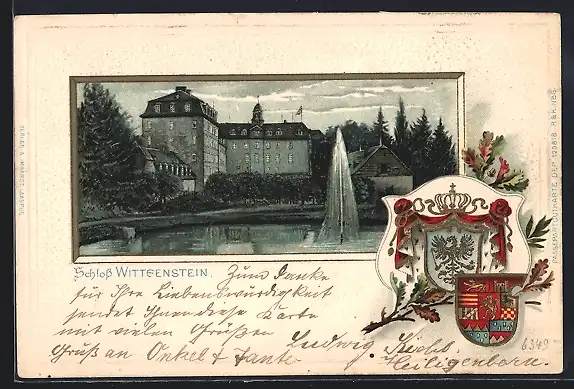 Schloß WITTGENSTEIN.
Zum Danke
für Ihre Liebenswürdigkeit
sendet Ihnen diese Karte
mit vielen Grüßen
Ludwig
Gruß an Onkel & Tante
Heiligenborn.
PASSEPARTOUTKARTE DEP. 123818 R & K No 8
6349